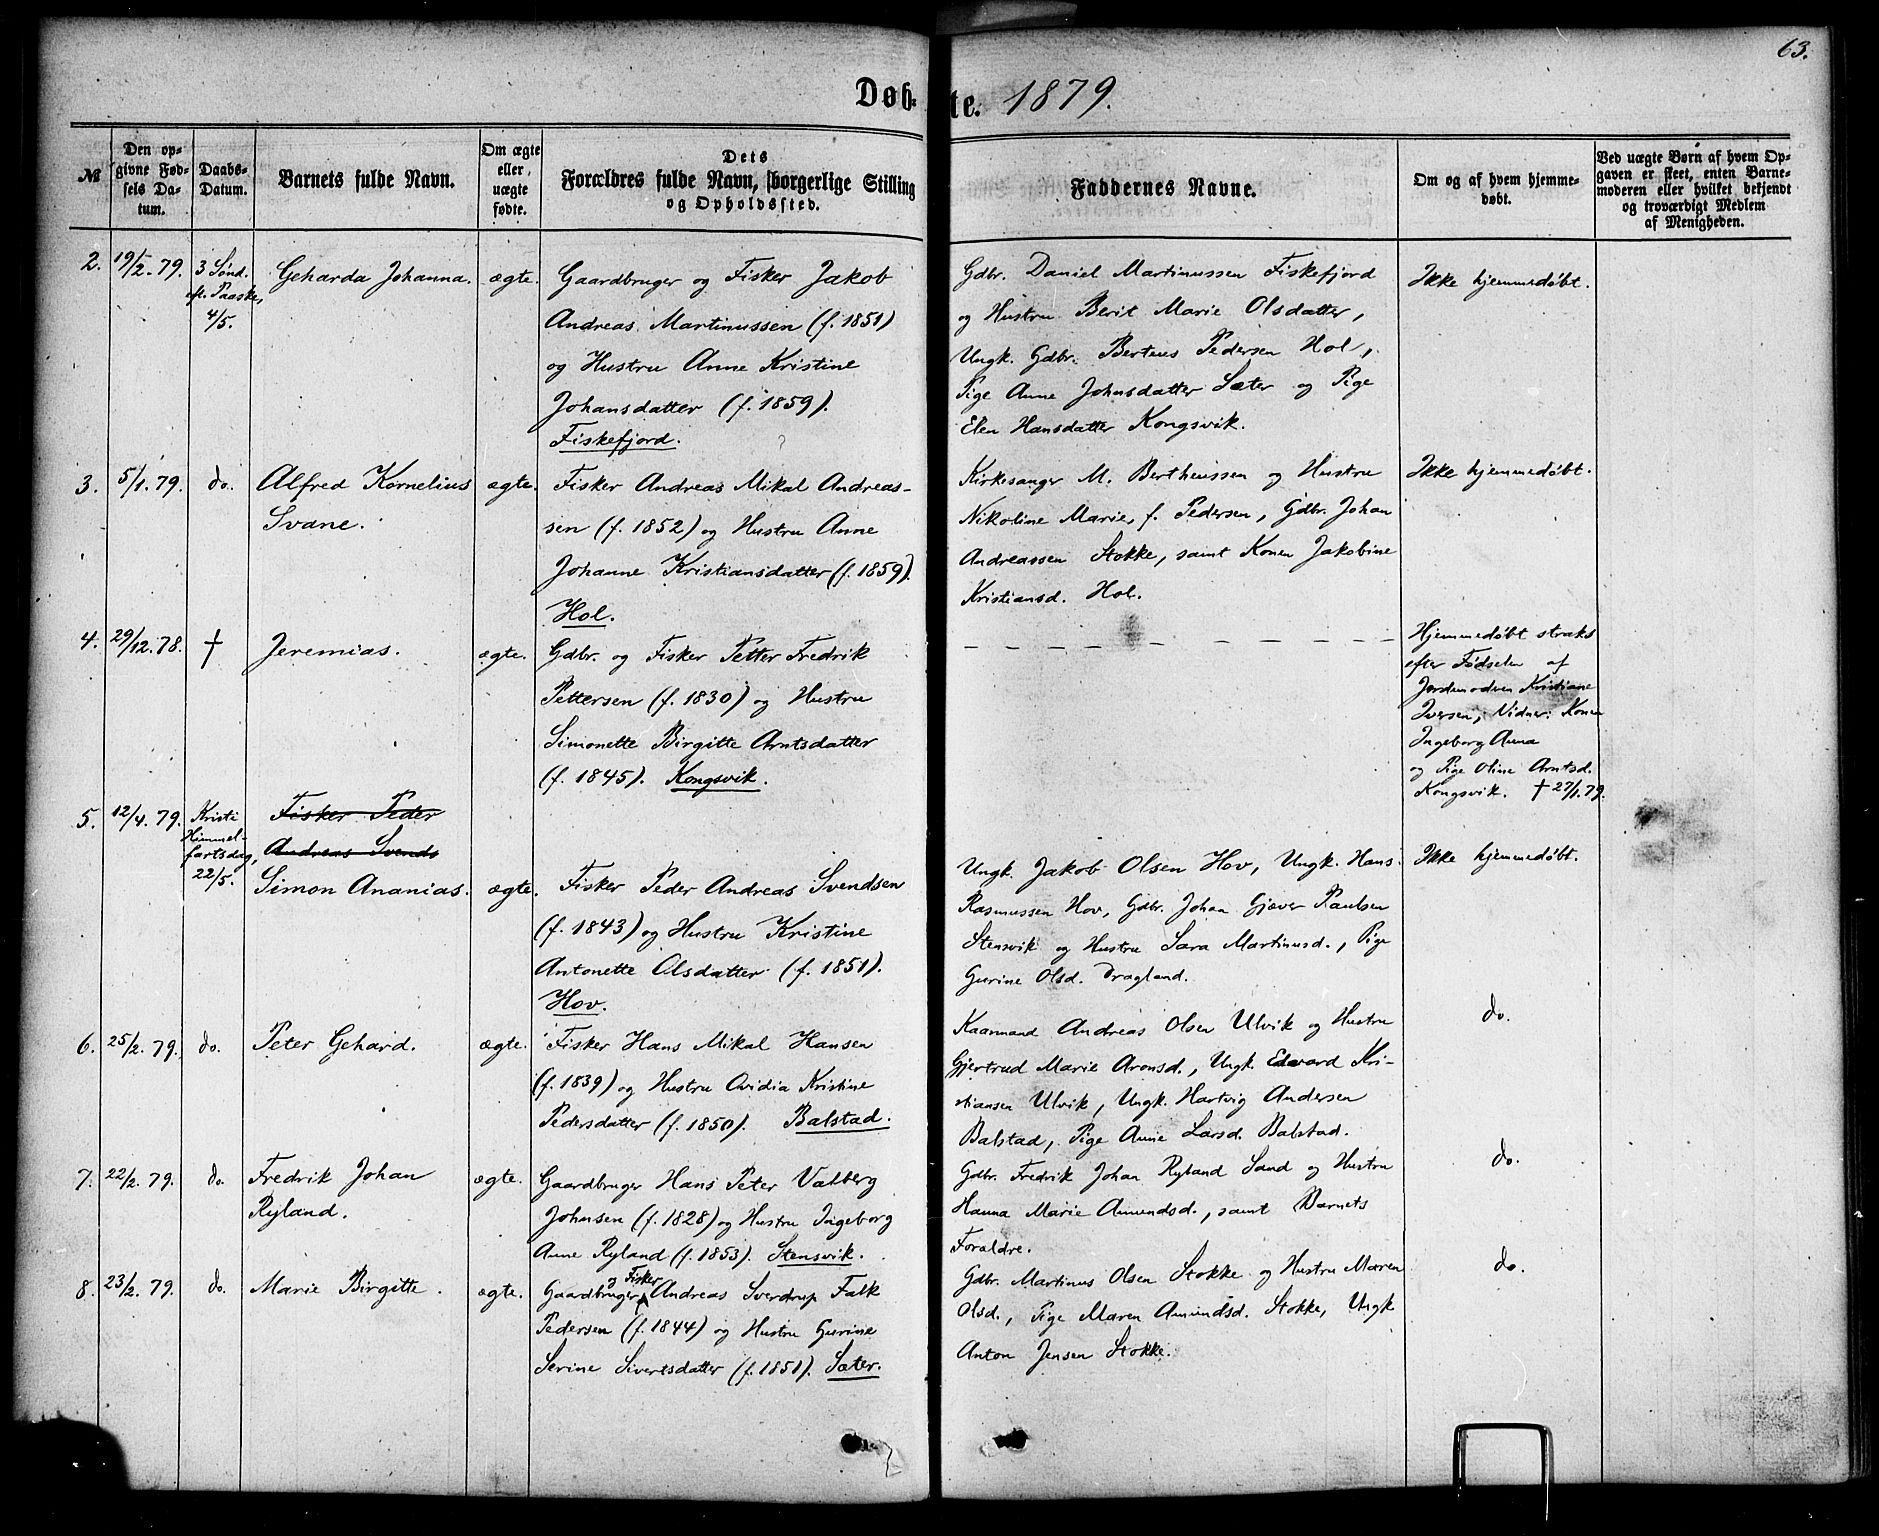 63.
Døbte. 1879.
№
Den opgivne Fødsels Datum.
Daabs-Datum.
Barnets fulde Navn.
Om ægte eller uægte fødte.
Dets Forældres fulde Navn, borgerlige Stilling og Opholdssted.
Faddernes Navne.
Om og af hvem hjemmedøbt.
Ved uægte Børn af hvem Opgaven er skeet, enten Barnemoderen eller hvilket bekjendt og troværdigt Medlem af Menigheden.
2. 19/2. 79. 3 Sønd. eft. Paaske, 4/5. Geharda Johanna. ægte.
Gaardbruger og Fisker Jakob
Andreas Martinussen (f. 1851)
og Hustru Anne Kristine
Johansdatter (f. 1859).
Fiskefjord.
Gdbr. Daniel Martinussen Fiskefjord
og Hustru Berit Marie Olsdatter,
Ungk. Gdbr. Berteus Pedersen Hol,
Pige Anne Johnsdatter Sæter og Pige
Elen Hansdatter Kongsvik.
Ikke hjemmedøbt.
3. 5/1. 79. do. Alfred Kornelius
Svane.
ægte.
Fisker Andreas Mikal Andreas-
sen (f. 1852) og Hustru Anne
Johanne Kristiansdatter (f. 1859).
Hol.
Kirkesanger M. Bertheussen og Hustru
Nikoline Marie, f. Pedersen, Gdbr. Johan
Andreassen Stokke, samt Konen Jakobine
Kristiansd. Hol.
Ikke hjemmedøbt.
4. 29/12. 78. † Jeremias. ægte.
Gdbr. og Fisker Petter Fredrik
Pettersen (f. 1830) og Hustru
Simonette Birgitte Arntsdatter
(f. 1845). Kongsvik.
Hjemmedøbt straks
efter Fødselen af
Jordemoderen Kristiane
Iversen; Vidner: Konen
Ingeborg Anna
og Pige Oline Arntsd.
Kongsvik. † 27/1. 79.
5. 12/4. 79. Kristi
Himmel-
fartsdag,
22/5.
Fisker Peder
Andreas Svends
Simon Ananias. ægte.
Fisker Peder Andreas Svendsen
(f. 1843) og Hustru Kristine
Antonette Olsdatter (f. 1851).
Hov.
Ungk. Jakob Olsen Hov, Ungk. Hans
Rasmussen Hov, Gdbr. Johan Gjæver Paulsen
Stensvik og Hustru Sara Martinusd., Pige
Gurine Olsd. Dragland.
Ikke hjemmedøbt.
6. 25/2. 79. do. Peter Gehard. ægte.
Fisker Hans Mikal Hansen
(f. 1839) og Hustru Ovidia Kristine
Pedersdatter (f. 1850). Balstad.
Kaarmand Andreas Olsen Ulvik og Hustru
Gjertrud Marie Aronsd., Ungk. Edvard Kri-
stiansen Ulvik, Ungk. Hartvig Andersen
Balstad, Pige Anne Larsd. Balstad.
do.
7. 22/2. 79. do. Fredrik Johan
Ryland.
ægte.
Gaardbruger Hans Peter Valberg
Johnsen (f. 1828) og Hustru Ingeborg
Anne Ryland (f. 1853). Stensvik.
Gdbr. Fredrik Johan Ryland Sand og Hustru
Hanna Marie Amundsd., samt Barnets
Forældre.
do.
8. 23/2. 79. do. Marie Birgitte. ægte.
og Fisker
Gaardbruger Andreas Sverdrup Falk
Pedersen (f. 1844) og Hustru Gurine
Serine Sivertsdatter (f. 1851). Sæter.
Gdbr. Martinus Olsen Stokke og Hustru Maren
Olsd., Pige Maren Amundsd. Stokke, Ungk
Anton Jensen Stokke.
do.